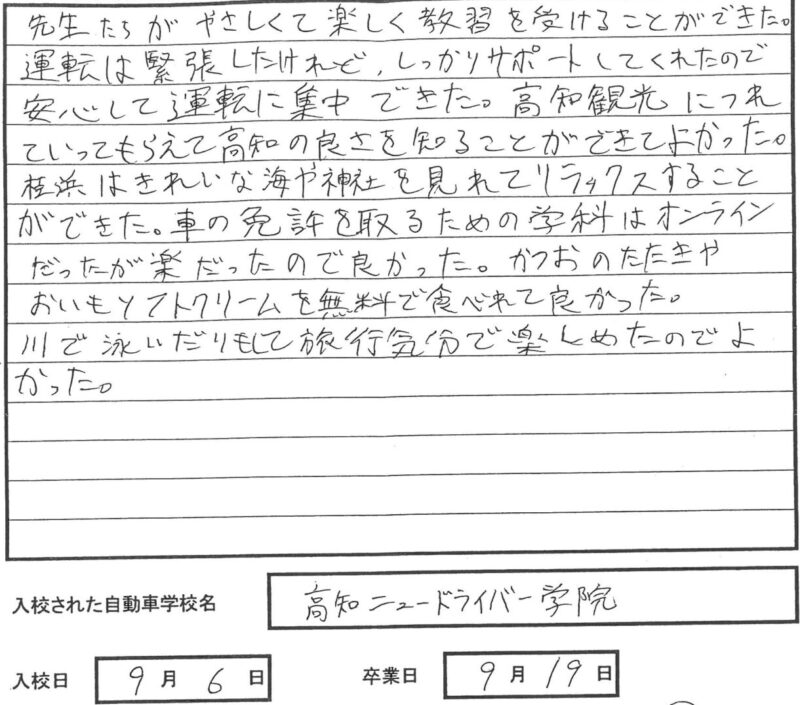 先生たちがやさしくて楽しく教習を受けることができた。
運転は緊張したけれど、しっかりサポートしてくれたので
安心して運転に集中できた。高知観光につれ
ていってもらえて高知の良さを知ることができてよかった。
桂浜はきれいな海や神社を見れてリラックスすること
ができた。車の免許を取るための学科はオンライン
だったが楽だったので良かった。かつおのたたきや
おいもソフトクリームを無料で食べれて良かった。
川で泳いだりもして旅行気分で楽しめたのでよ
かった。
入校された自動車学校名 高知ニュードライバー学院
入校日 9月6日 卒業日 9月19日